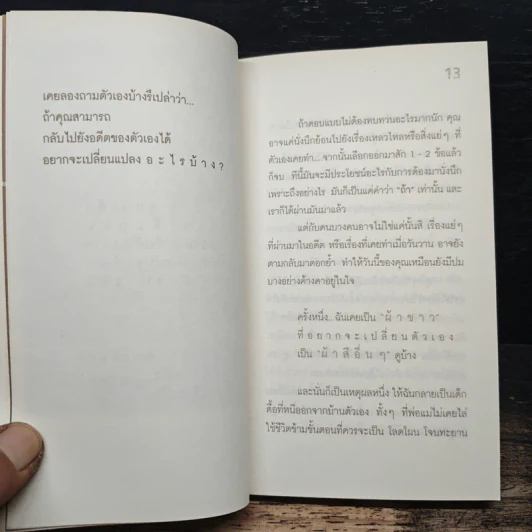 เคยลองถามตัวเองบ้างรึเปล่าว่า...
ถ้าคุณสามารถ
กลับไปยังอดีตของตัวเองได้
อยากจะเปลี่ยนแปลง อ ะ ไ ร บ้ า ง ?
13
ถ้าตอบแบบไม่ต้องทบทวนอะไรมากนัก คุณ
อาจแค่นั่งนึกย้อนไปยังเรื่องเหลวไหลหรือสิ่งแย่ๆ ที่
ตัวเองเคยทำ... จากนั้นเลือกออกมาสัก 1 - 2 ข้อแล้ว
ก็จบ ทีนี้มันจะมีประโยชน์อะไรกับการต้องมานั่งนึก
เพราะถึงอย่างไร มันก็เป็นแค่คำว่า "ถ้า" เท่านั้น และ
เราก็ได้ผ่านมันมาแล้ว
แต่กับคนบางคนอาจไม่ใช่แค่นั้นสิ เรื่องแย่ๆ
ที่ผ่านมาในอดีต หรือเรื่องที่เคยทำเมื่อวันวาน อาจยัง
ตามกลับมาตอกย้ำ ทำให้วันนี้ของคุณเหมือนยังมีปม
บางอย่างค้างคาอยู่ในใจ
ครั้งหนึ่ง... ฉันเคยเป็น "ผ้ า ข า ว"
ที่ อ ย า ก จ ะ เ ป ลี่ ย น ตั ว เ อ ง
เป็น "ผ้ า สี อื่ น ๆ" ดูบ้าง
และนั่นก็เป็นเหตุผลหนึ่ง ให้ฉันกลายเป็นเด็ก
ดื้อที่หนีออกจากบ้านตัวเอง ทั้งๆ ที่พ่อแม่ไม่เคยไล่
ใช้ชีวิตข้ามขั้นตอนที่ควรจะเป็น โลดโผน โจนทะยาน